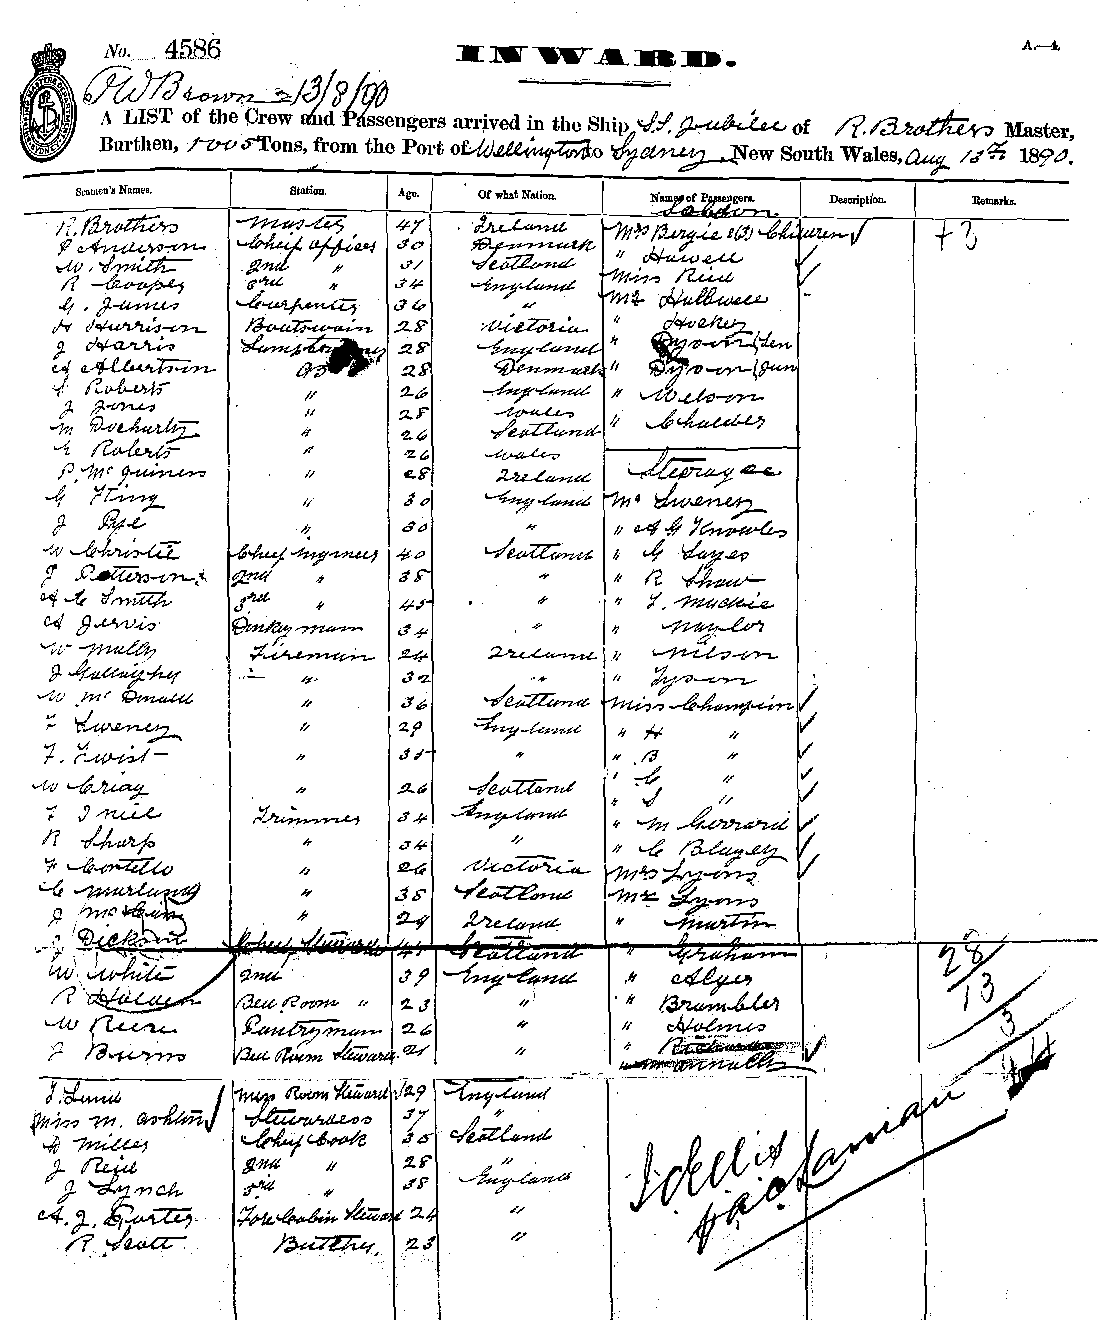 No. 4586
INWARD.
A.—4.
J W Brown 13/8/90
A LIST of the Crew and Passengers arrived in the Ship S.S. Jubilee of R. Brothers Master,
Burthen, 1005 Tons, from the Port of Wellington to Sydney, New South Wales, Aug 13th 1890.
Seamen's Names. Station. Age. Of what Nation. Names of Passengers. Description. Remarks.
Saloon
R. Brothers Master 47 Ireland Mrs Bergie & (3) Children
P Anderson Chief Officer 30 Denmark " Howell
W. Smith 2nd " 31 Scotland Miss Reid
R Cooper 3rd " 34 England Mr Halliwell
G. James Carpenter 36 " " Hockey
H Harrison Boatswain 28 Victoria " Dyson (Sen
J Harris 28 England " Dyson (Jun
A Albertson AB 28 Denmark " Nelson
S Roberts " 26 England " Chalder
J Jones " 28 Wales
M Docharty " 26 Scotland
E Roberts " 26 Wales Steerage
P. McGuiness " 28 Ireland
G King " 30 England Mr Sweney
J Pye " 30 " " A G Knowles
W Christie Chief Engineer 40 Scotland " G Sayes
J Patterson 2nd " 38 " " R Shaw
A C Smith 3rd " 45 " " J. Mackie
A Jervis Donkeyman 34 " " Naylor
W Mally Fireman 24 Ireland " Nilson
J Gallagher " 32 " " Tyson
W McDonald " 36 Scotland Miss Champion
T Sweney " 29 England " H "
F. Twist " 35 " " B "
W Craig " 26 Scotland " C "
T Neil Trimmer 34 England " S "
R Sharp " 34 " " M Gerrard
F Costello " 26 Victoria " C Blazey
C " 38 Scotland Mrs Lyons
J " 29 Ireland Mr Lyons
" Martin
J Dickson Chief Steward 45 Scotland " Graham
W White 2nd 39 England " Alger
R Holden Bed Room " 23 " " Brambler
W Reese Pantryman 26 " " Holmes
J Burns Bed Room Steward 21 "
28
13
3
44
J. Lund Mess Room Steward 29 England
Miss M. Ashton Stewardess 37 "
D Miller Chief Cook 35 Scotland
J Reid 2nd " 28 "
J Lynch 3rd " 38 England
A. J. Porter Fore Cabin Steward 24 "
R Scott Butcher 23 "